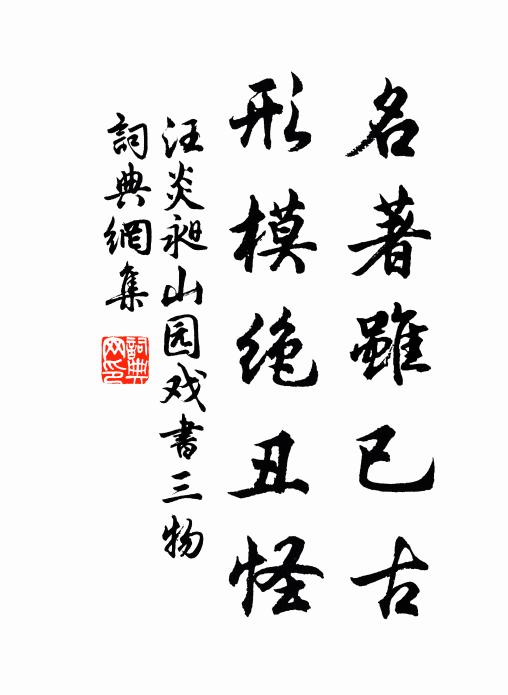 名著雖已古
形模绝丑怪
汪炎昶山园戏書三物
詞典網集
詞典网印